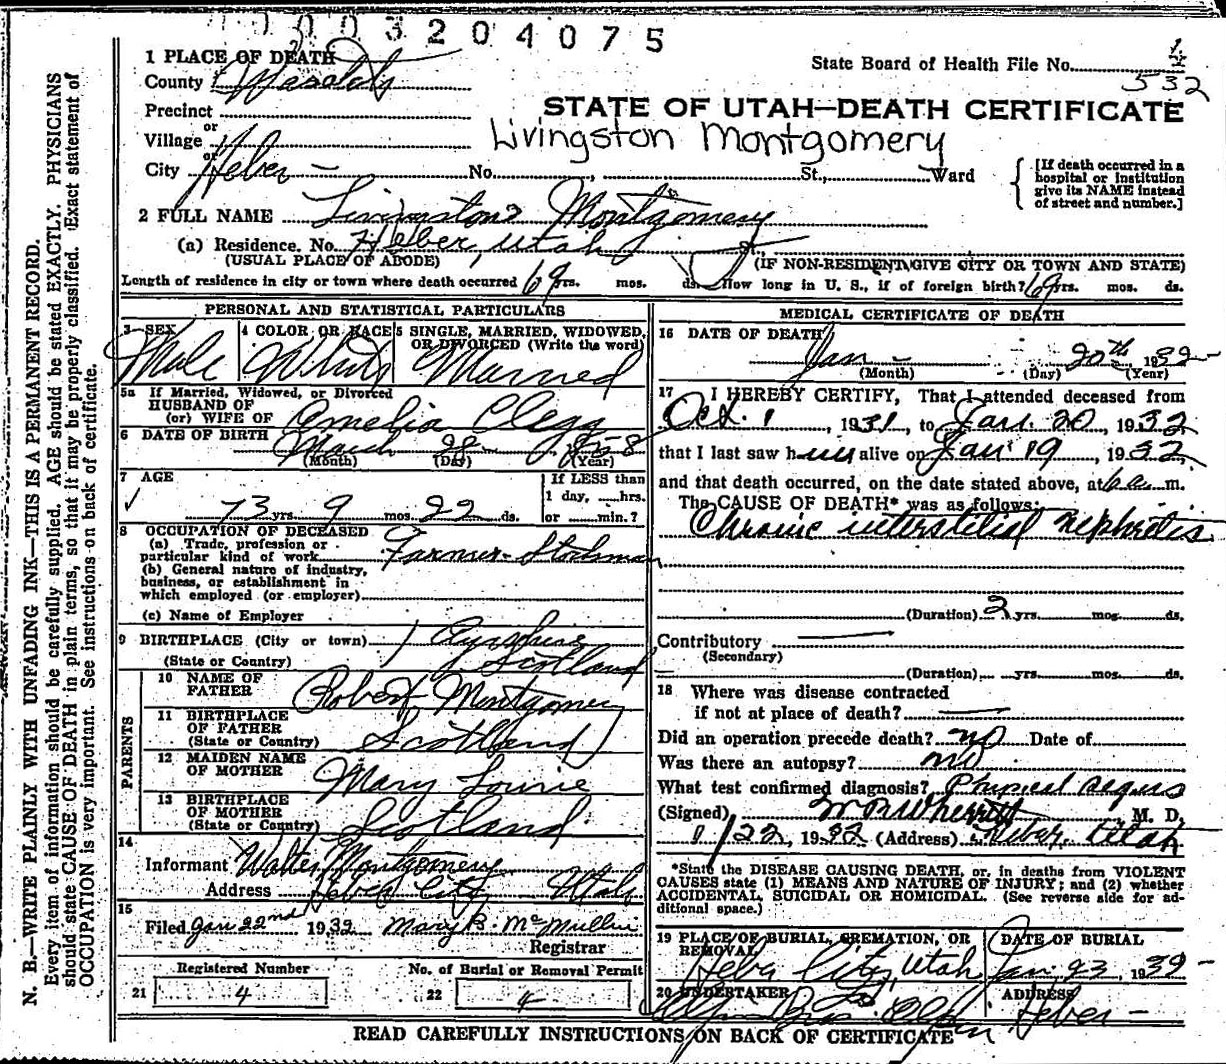 0003204075
1 PLACE OF DEATH
State Board of Health File No.
532
County Wasatch
STATE OF UTAH—DEATH CERTIFICATE
Precinct
Livingston Montgomery
or
Village
or
City Heber — No. St., Ward
[If death occurred in a hospital or institution give its NAME instead of street and number.]
2 FULL NAME Livingston Montgomery
(a) Residence. No. Heber, Utah St.,
(USUAL PLACE OF ABODE)
(IF NON-RESIDENT, GIVE CITY OR TOWN AND STATE)
Length of residence in city or town where death occurred 69 yrs. mos. ds. How long in U. S., if of foreign birth? 69 yrs. mos. ds.
PERSONAL AND STATISTICAL PARTICULARS
3 SEX
Male
4 COLOR OR RACE
White
5 SINGLE, MARRIED, WIDOWED, OR DIVORCED (Write the word)
Married
5a If Married, Widowed, or Divorced
HUSBAND OF
(or) WIFE OF Amelia Clegg
6 DATE OF BIRTH March 28 1858
(Month) (Day) (Year)
7 AGE
73 yrs. 9 mos. 22 ds.
If LESS than
1 day, hrs.
or min.?
8 OCCUPATION OF DECEASED
(a) Trade, profession or
particular kind of work Farmer-Stockman
(b) General nature of industry,
business, or establishment in
which employed (or employer)
(c) Name of Employer
9 BIRTHPLACE (City or town) Ayrshire
(State or Country) Scotland
PARENTS
10 NAME OF
FATHER Robert Montgomery
11 BIRTHPLACE
OF FATHER
(State or Country) Scotland
12 MAIDEN NAME
OF MOTHER Mary
13 BIRTHPLACE
OF MOTHER
(State or Country) Scotland
14
Informant Walter Montgomery
Address Heber City Utah
15
Filed Jan 22nd 1932 Mary B. McMullin
Registrar
Registered Number
21 4
No. of Burial or Removal Permit
22 4
MEDICAL CERTIFICATE OF DEATH
16 DATE OF DEATH
Jan — 20th, 1932-
(Month) (Day) (Year)
17 I HEREBY CERTIFY, That I attended deceased from
Oct. 1, 1931, to Jan. 20, 1932
that I last saw him alive on Jan 19, 1932,
and that death occurred, on the date stated above, at 6 a m.
The CAUSE OF DEATH* was as follows:
Chronic interstitial nephritis
(Duration) 2 yrs. mos. ds.
Contributory
(Secondary)
(Duration) yrs. mos. ds.
18 Where was disease contracted
if not at place of death?
Did an operation precede death? no Date of
Was there an autopsy? no
What test confirmed diagnosis? Physical signs
(Signed) M. D.
1/22, 1932 (Address) Heber, Utah
*State the DISEASE CAUSING DEATH, or, in deaths from VIOLENT
CAUSES state (1) MEANS AND NATURE OF INJURY; and (2) whether
ACCIDENTAL, SUICIDAL OR HOMICIDAL. (See reverse side for ad-
ditional space.)
19 PLACE OF BURIAL, CREMATION, OR REMOVAL
Heber City, Utah
DATE OF BURIAL
Jan. 23, 1932-
20 UNDERTAKER
ADDRESS
Heber —
READ CAREFULLY INSTRUCTIONS ON BACK OF CERTIFICATE
N. B.—WRITE PLAINLY WITH UNFADING INK—THIS IS A PERMANENT RECORD.
Every item of information should be carefully supplied. AGE should be stated EXACTLY. PHYSICIANS
should state CAUSE OF DEATH in plain terms, so that it may be properly classified. Exact statement of
OCCUPATION is very important. See instructions on back of certificate.